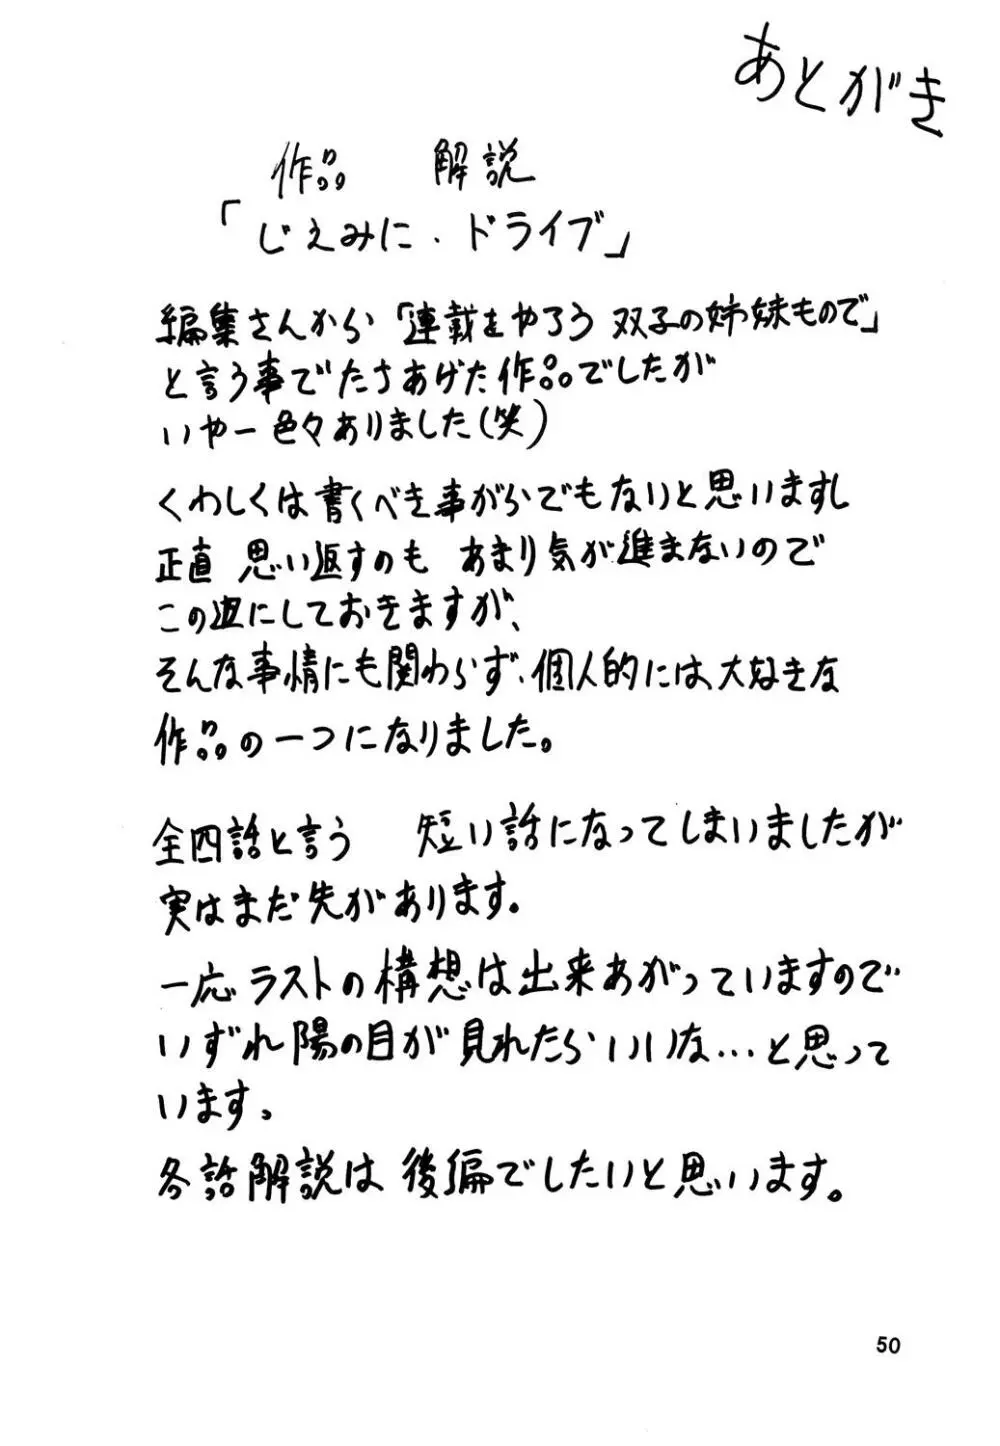 あとがき
作品 解説
「じえみに・ドライブ」
編集さんから「連載をやろう 双子の姉妹もので」
と言う事でたちあげた作品でしたが
いやー色々ありました(笑)
くわしくは書くべき事がらでもないと思いますし
正直 思い返すのも あまり気が進まないので
この辺にしておきますが、
そんな事情にも関わらず、個人的には、大好きな
作品の一つになりました。
全四話と言う 短い話になってしまいましたが
実はまだ先があります。
一応ラストの構想は出来あがっていますので
いずれ陽の目が見れたらいいな…と思って
います。
各話解説は 後編でしたいと思います。
50